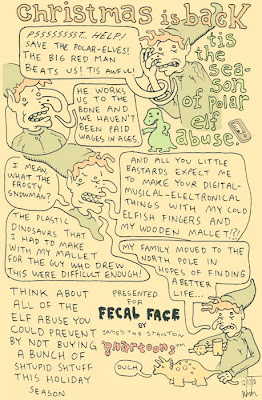 christmas is back
'tis
the
sea-
son
of polar
elf
abuse.
PSSSSSSSST... HELP!
SAVE THE POLAR-ELVES!
THE BIG RED MAN
BEATS US! TIS AWFUL!
HE WORKS
US TO THE
BONE AND
WE HAVEN'T
BEEN PAID
WAGES IN AGES.
I MEAN,
WHAT THE
FROSTY
SNOWMAN?
AND ALL YOU LITTLE
BASTARDS EXPECT ME
TO MAKE YOUR DIGITAL-
MUSICAL-ELECTRONICAL
THINGS WITH MY COLD
ELFISH FINGERS AND
MY WOODEN MALLET!?!
THE PLASTIC
DINOSAURS THAT
I HAD TO MAKE
WITH MY MALLET
FOR THE GUY WHO DREW
THIS WERE DIFFICULT ENOUGH!
MY FAMILY MOVED TO THE
NORTH POLE IN
HOPES OF FINDING
A BETTER
LIFE...
THINK ABOUT
ALL OF THE
ELF ABUSE YOU
COULD PREVENT
BY NOT BUYING
A BUNCH OF
SHTUPID SHTUFF
THIS HOLIDAY
SEASON
PRESENTED
FOR
FECAL FACE
BY
JAMES THE STANTON
GNARTOONS
OUCH